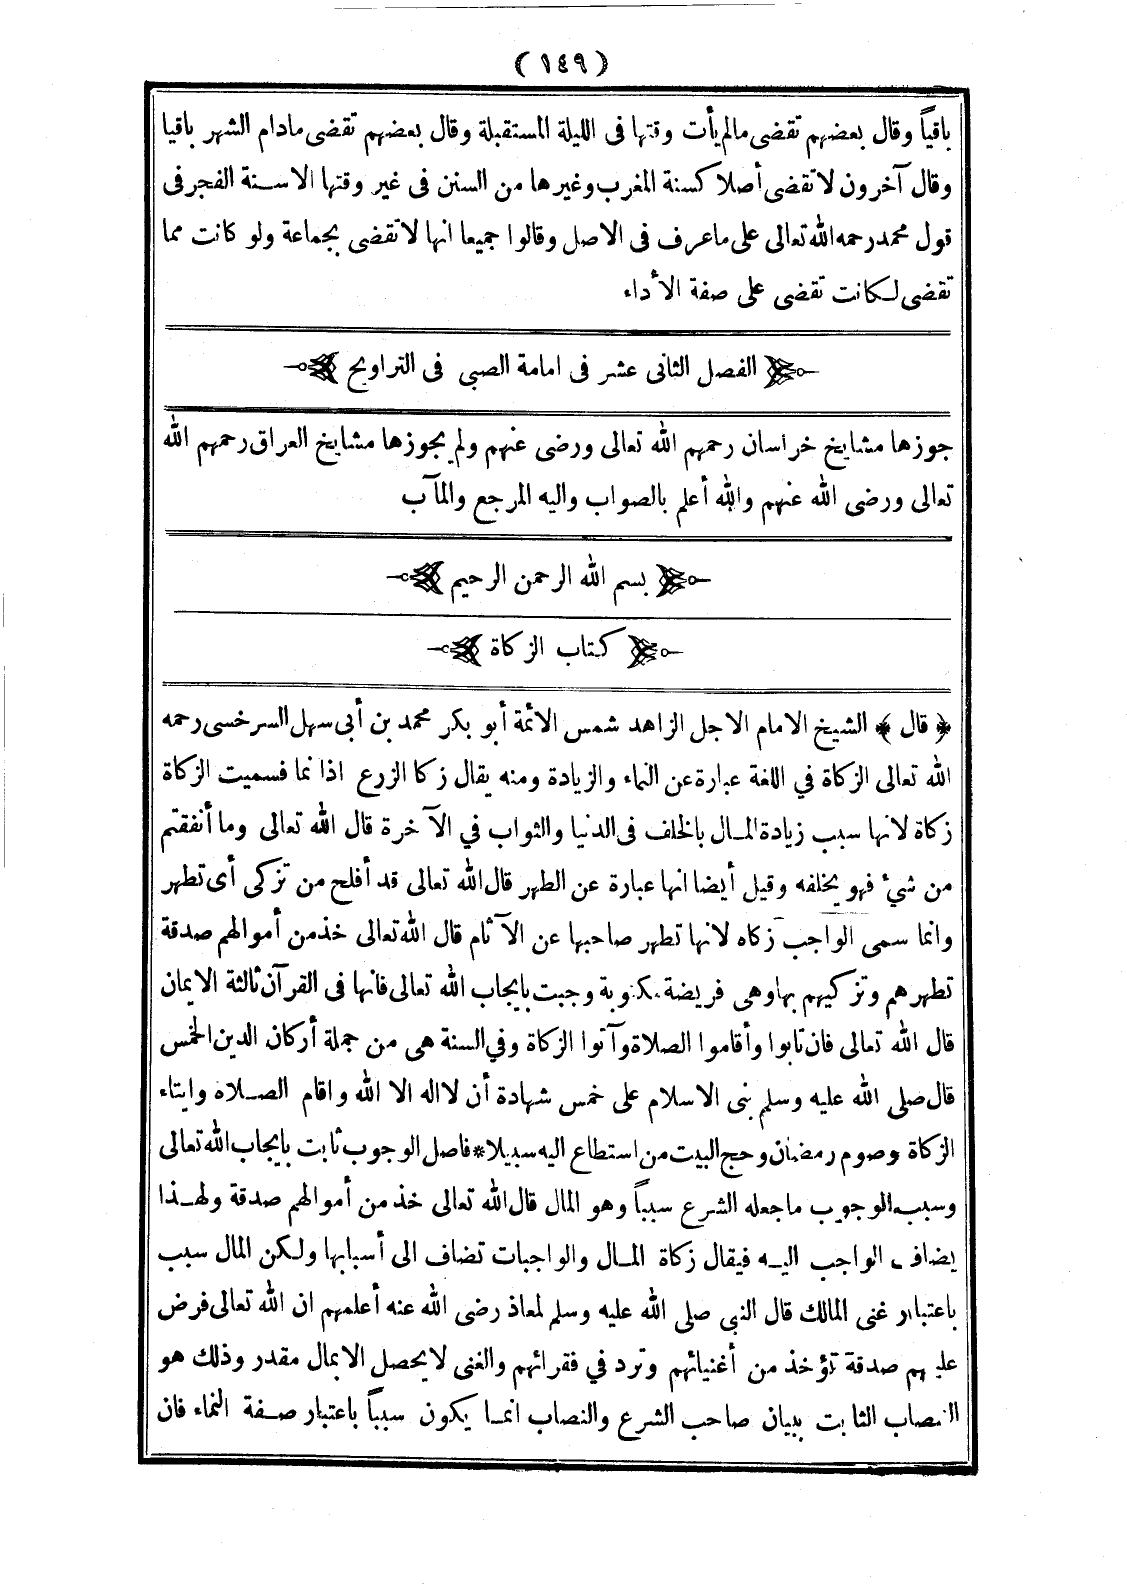 (١٤٩)
باقياً وقال بعضهم تقضى مالم يأت وقتها فى الليلة المستقبلة وقال بعضهم تقضى مادام الشهر باقيا
وقال آخرون لا تقضى أصلا كسنة المغرب وغيرها من السنن فى غير وقتها الا سنة الفجر فى
قول محمد رحمه الله تعالى على ما عرف فى الاصل وقالوا جميعا انها لا تقضى بجماعة ولو كانت مما
تقضى لكانت تقضى على صفة الأداء
الفصل الثانى عشر فى امامة الصبى فى التراويح
جوزها مشايخ خراسان رحمهم الله تعالى ورضى عنهم ولم يجوزها مشايخ العراق رحمهم الله
تعالى ورضى الله عنهم والله أعلم بالصواب واليه المرجع والمآب
بسم الله الرحمن الرحيم
كتاب الزكاة
﴿ قال ﴾ الشيخ الامام الاجل الزاهد شمس الائمة أبو بكر محمد بن أبى سهل السرخسى رحمه
الله تعالى الزكاة في اللغة عبارة عن النماء والزيادة ومنه يقال زكا الزرع اذا نما فسميت الزكاة
زكاة لانها سبب زيادة المال بالخلف فى الدنيا والثواب في الآخرة قال الله تعالى وما أنفقتم
من شيء فهو يخلفه وقيل أيضا انها عبارة عن الطهر قال الله تعالى قد أفلح من تزكى أى تطهر
وانما سمى الواجب زكاه لانها تطهر صاحبها عن الآثام قال الله تعالى خذ من أموالهم صدقة
تطهرهم وتزكيهم بها وهى فريضة مكتوبة وجبت بايجاب الله تعالى فانها فى القرآن ثالثة الايمان
قال الله تعالى فان تابوا وأقاموا الصلاة وآتوا الزكاة وفي السنة هى من جملة أركان الدين الخمس
قال صلى الله عليه وسلم بنى الاسلام على خمس شهادة أن لا اله الا الله واقام الصلاه وايتاء
الزكاة وصوم رمضان وحج البيت من استطاع اليه سبيلا * فاصل الوجوب ثابت بايجاب الله تعالى
وسبب الوجوب ما جعله الشرع سبباً وهو المال قال الله تعالى خذ من أموالهم صدقة ولهذا
يضاف الواجب اليه فيقال زكاة المال والواجبات تضاف الى أسبابها ولكن المال سبب
باعتبار غنى المالك قال النبى صلى الله عليه وسلم لمعاذ رضى الله عنه أعلمهم ان الله تعالى فرض
عليهم صدقة تؤخذ من أغنيائهم وترد في فقرائهم والغنى لا يحصل الا بمال مقدر وذلك هو
النصاب الثابت ببيان صاحب الشرع والنصاب انما يكون سبباً باعتبار صفة النماء فان